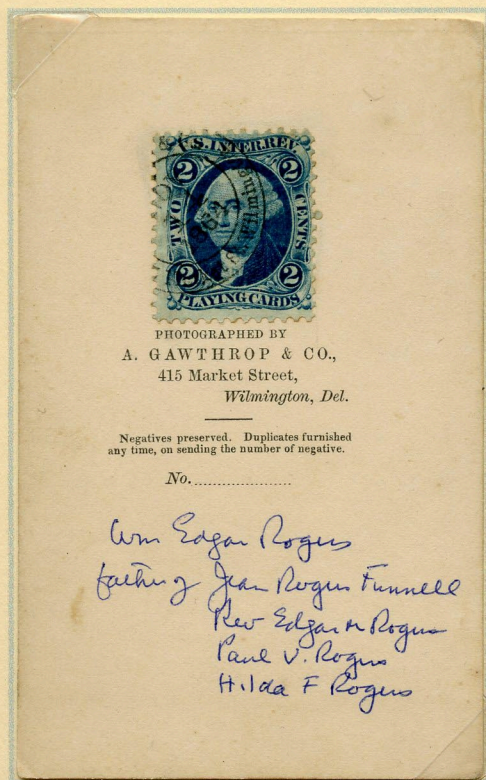 U.S. INTER. REV.
2 2
TWO CENTS
2 2
PLAYING CARDS
PHOTOGRAPHED BY
A. GAWTHROP & CO.,
415 Market Street,
Wilmington, Del.
Negatives preserved. Duplicates furnished
any time, on sending the number of negative.
No.
Wm Edgar Rogers
father of Jean Rogers Funnell
Rev Edgar M Rogers
Paul V. Rogers
Hilda F Rogers